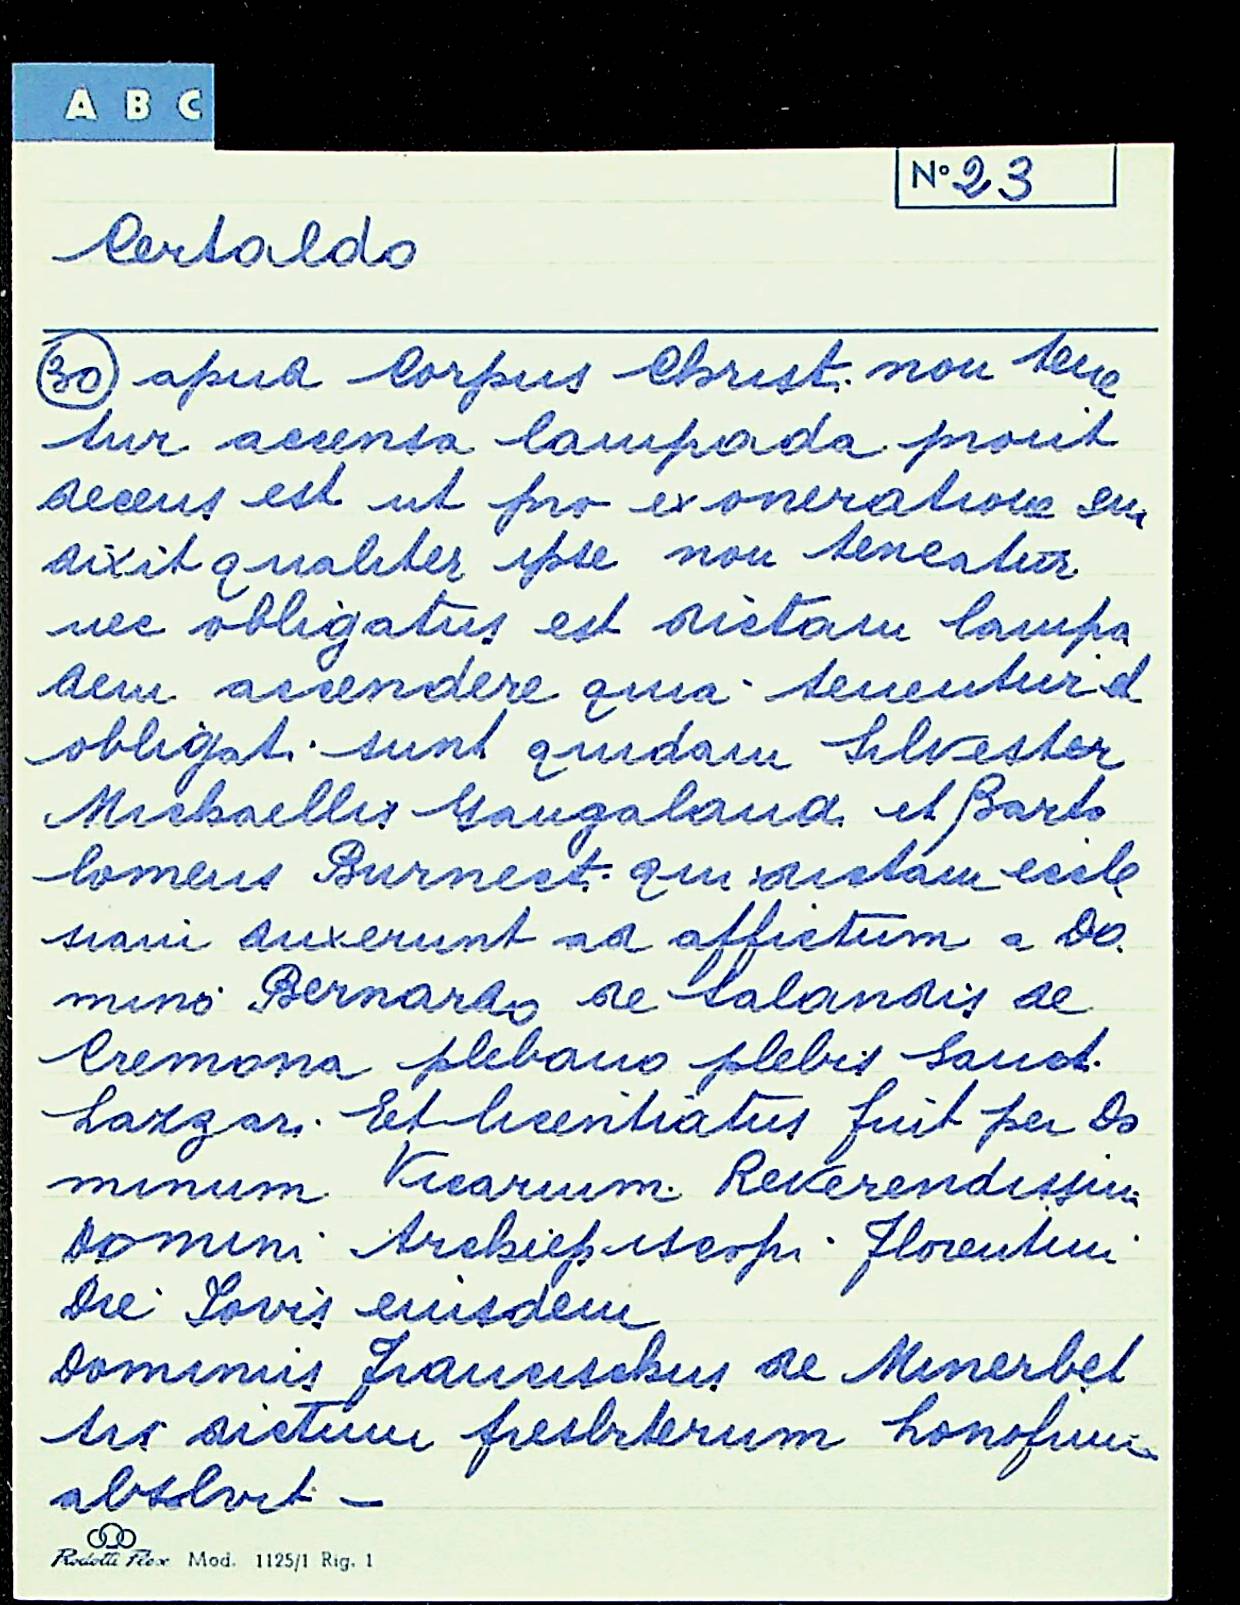 A B C
N° 23
Certaldo
30 apud Corpus Christi non tene
tur accensa lampada prout
decens est ut pro exoneratione sui
dixit qualiter ipse non teneatur
nec obligatus est dictam lampa
dem accendere quia tenentur et
obligati sunt quidam Silvester
Michaellis Gangalandi et Barto
lomeus Burnecti qui dictam eccle
siam duxerunt ad affictum a Do
mino Bernardo de Salandis de
Cremona plebano plebis Sancti
Lazzari. Et licentiatus fuit per Do
minum Vicarium Reverendissimi
Domini Archiepiscopi Florentini
Die Iovis eiusdem
Dominus Francischus de Minerbet
tis dictum presbiterum Honofrium
absolvit –
Mod. 1125/1 Rig. 1